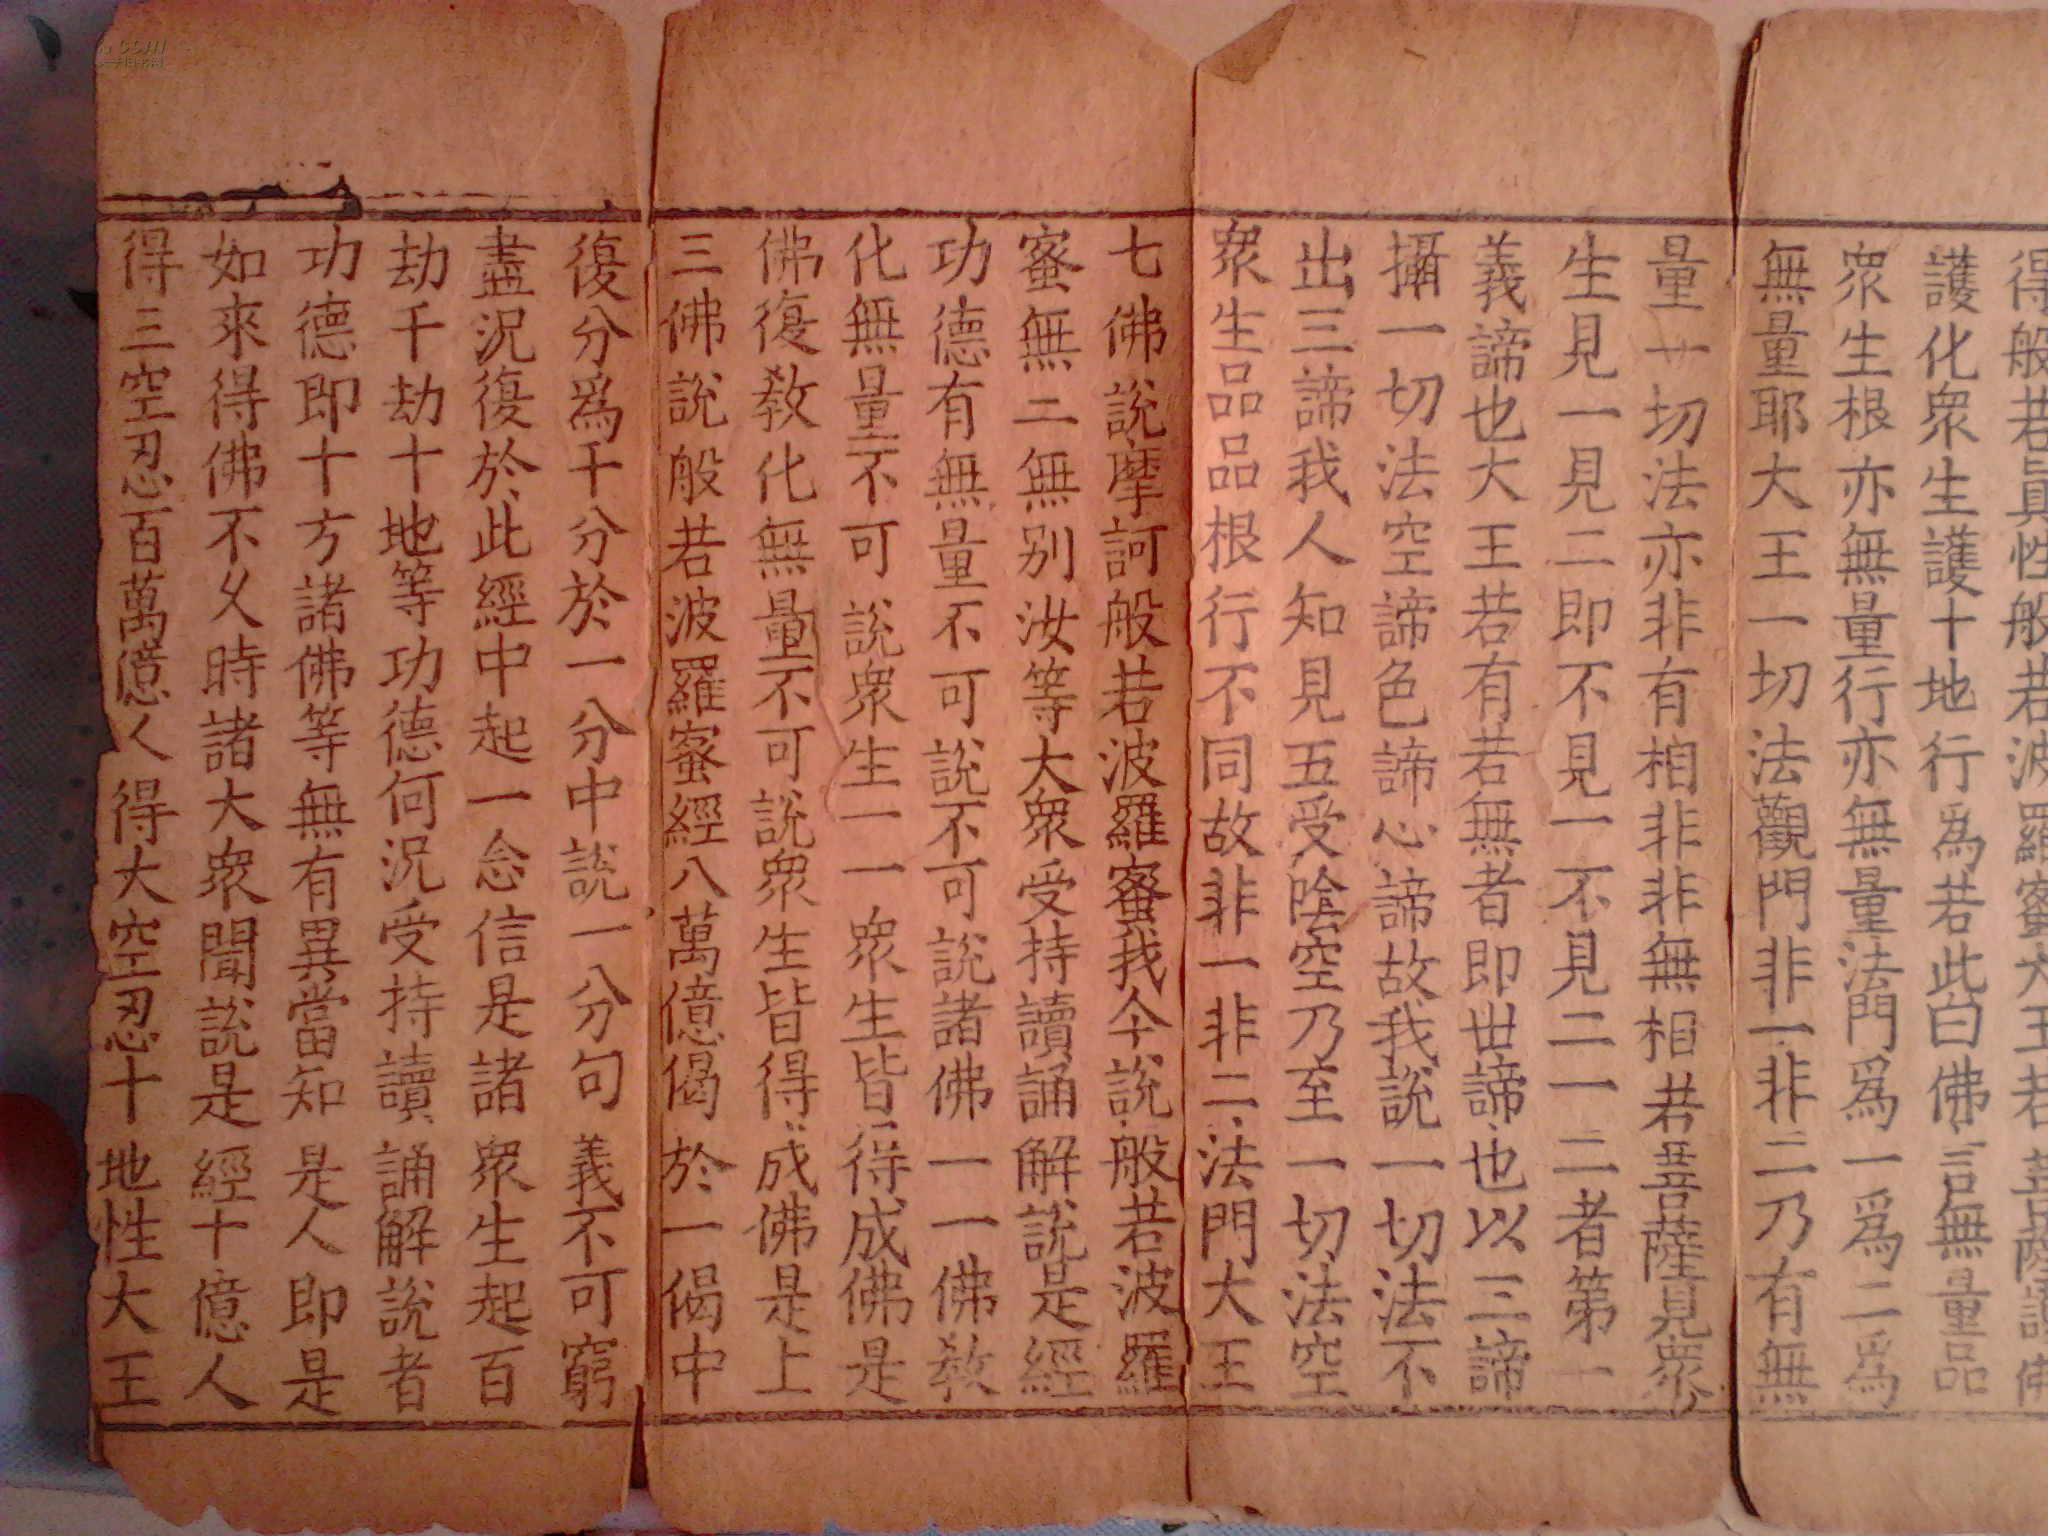 得般若眞性般若波羅蜜大王若菩薩護佛
護化衆生護十地行爲若此白佛言無量品
衆生根亦無量行亦無量法門爲一爲二爲
無量耶大王一切法觀門非一非二乃有無
量一切法亦非有相非非無相若菩薩見衆
生見一見二即不見一不見二一二者第一
義諦也大王若有若無者即世諦也以三諦
攝一切法空諦色諦心諦故我説一切法不
出三諦我人知見五受陰空乃至一切法空
衆生品品根行不同故非一非二法門大王
七佛説摩訶般若波羅蜜我今説般若波羅
蜜無二無别汝等大衆受持讀誦解説是經
功德有無量不可説不可説諸佛一一佛敎
化無量不可説衆生一一衆生皆得成佛是
佛復敎化無量不可説衆生皆得成佛是上
三佛説般若波羅蜜經八萬億偈於一偈中
復分爲千分於一分中説一分句義不可窮
盡況復於此經中起一念信是諸衆生起百
劫千劫十地等功德何況受持讀誦解説者
功德即十方諸佛等無有異當知是人即是
如來得佛不久時諸大衆聞説是經十億人
得三空忍百萬億人得大空忍十地性大王
.com